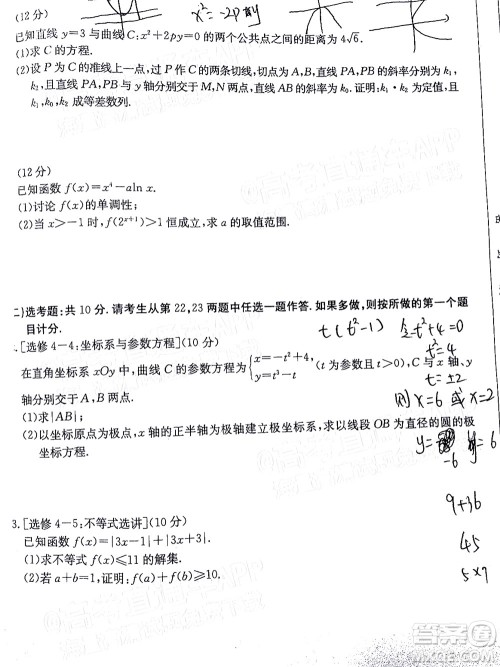 (12 分)
x²=-2py
已知直线 y=3 与曲线 C:x²+2py=0 的两个公共点之间的距离为 4√6.
(1)求 C 的方程.
(2)设 P 为 C 的准线上一点,过 P 作 C 的两条切线,切点为 A,B,直线 PA,PB 的斜率分别为 k₁,
k₂,且直线 PA,PB 与 y 轴分别交于 M,N 两点,直线 AB 的斜率为 k₀.证明:k₁·k₂ 为定值,且
k₁,k₀,k₂ 成等差数列.
(12 分)
已知函数 f(x)=x⁴-aln x.
(1)讨论 f(x)的单调性;
(2)当 x>-1 时,f(2ˣ⁺¹)>1 恒成立,求 a 的取值范围.
二)选考题:共 10 分.请考生从第 22,23 两题中任选一题作答.如果多做,则按所做的第一个题
目计分.
t(t²-1) 令t²+4=0
[选修 4-4:坐标系与参数方程](10 分)
t²=4
在直角坐标系 xOy 中,曲线 C 的参数方程为{x=-t²+4, y=t³-t}, C 与 x 轴、y
t=±2
轴分别交于 A,B 两点.
则x=6 或 x=2
(1)求|AB|;
(2)以坐标原点为极点,x 轴的正半轴为极轴建立极坐标系,求以线段 OB 为直径的圆的极
坐标方程.
y= -6 y=6
9+36
3.[选修 4-5:不等式选讲](10 分)
已知函数 f(x)=|3x-1|+|3x+3|.
45
(1)求不等式 f(x)≤11 的解集.
(2)若 a+b=1,证明:f(a)+f(b)≥10.
5×9
答案圈